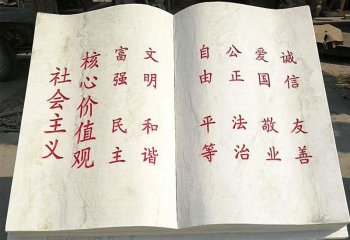 社会主义
核心价值观
富强 民主
文明 和谐
自由 平等
公正 法治
爱国 敬业
诚信 友善